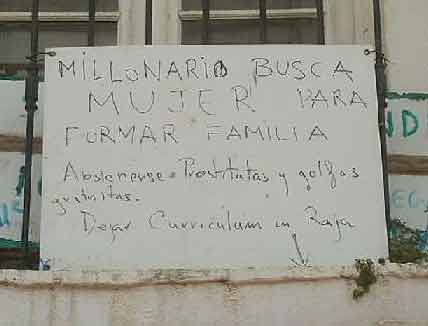 MILLONARIO BUSCA
MUJER PARA
FORMAR FAMILIA
Abstenerse Prostitutas y golfas
gratuitas.
Dejar Curriculum in Reja